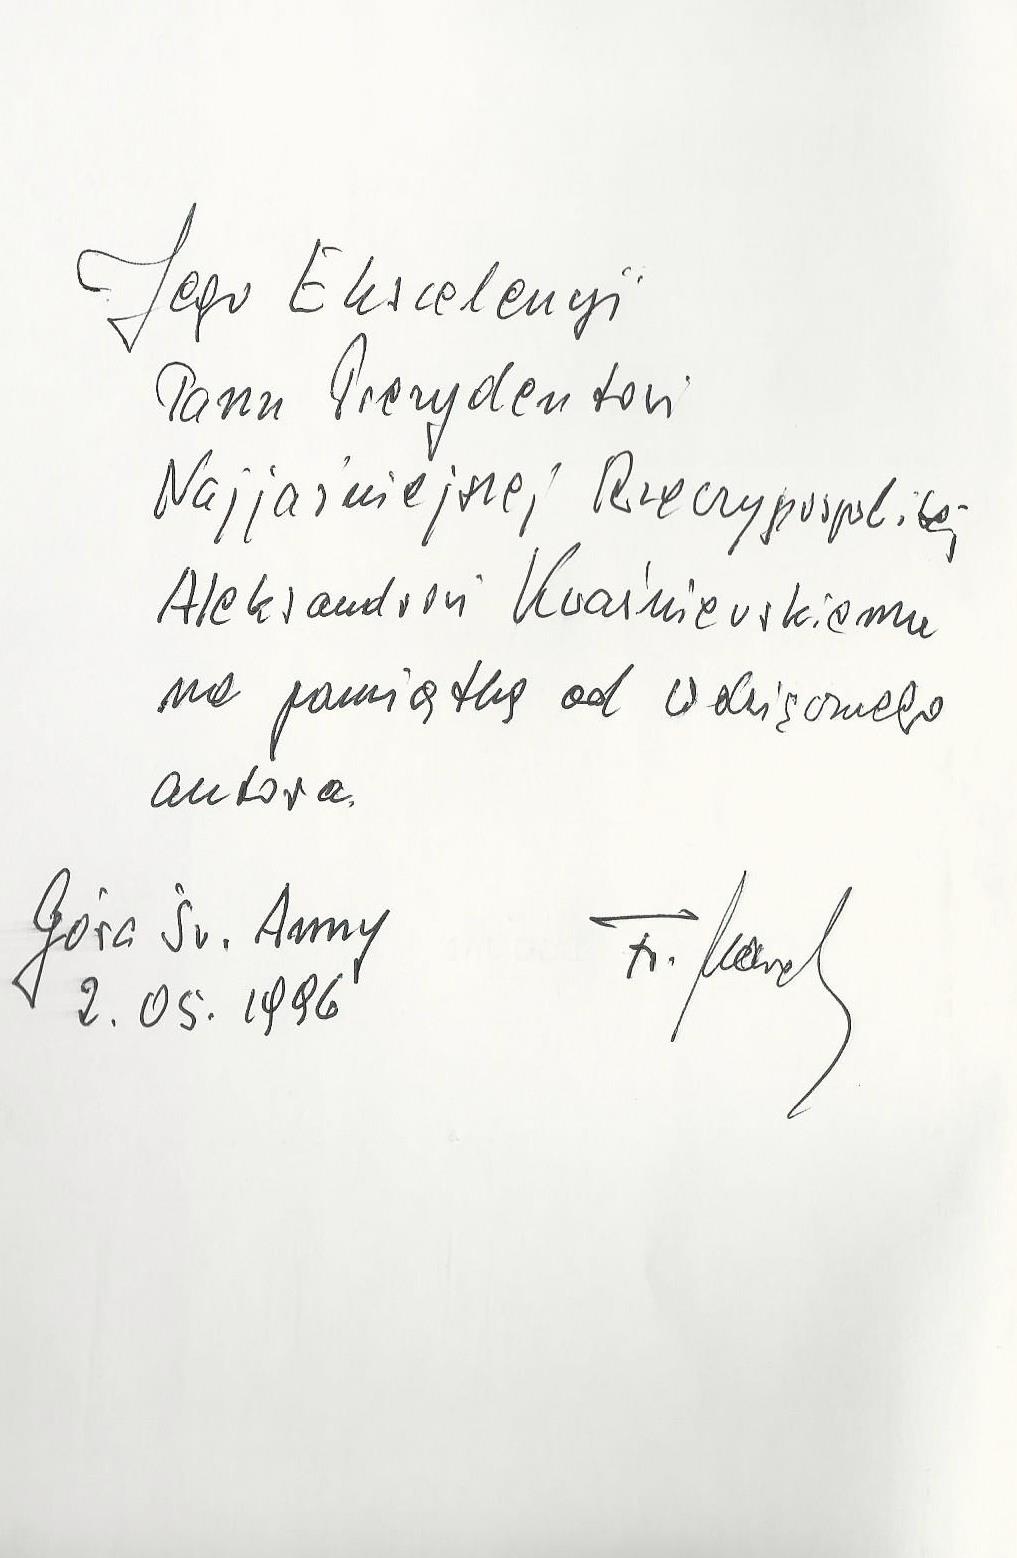 Jego Ekscelencji
Panu Prezydentowi
Najjaśniejszej Rzeczypospolitej
Aleksandrowi Kwaśniewskiemu
na pamiątkę od wdzięcznego
autora.
Góra Św. Anny
2. 05. 1996
Fr.